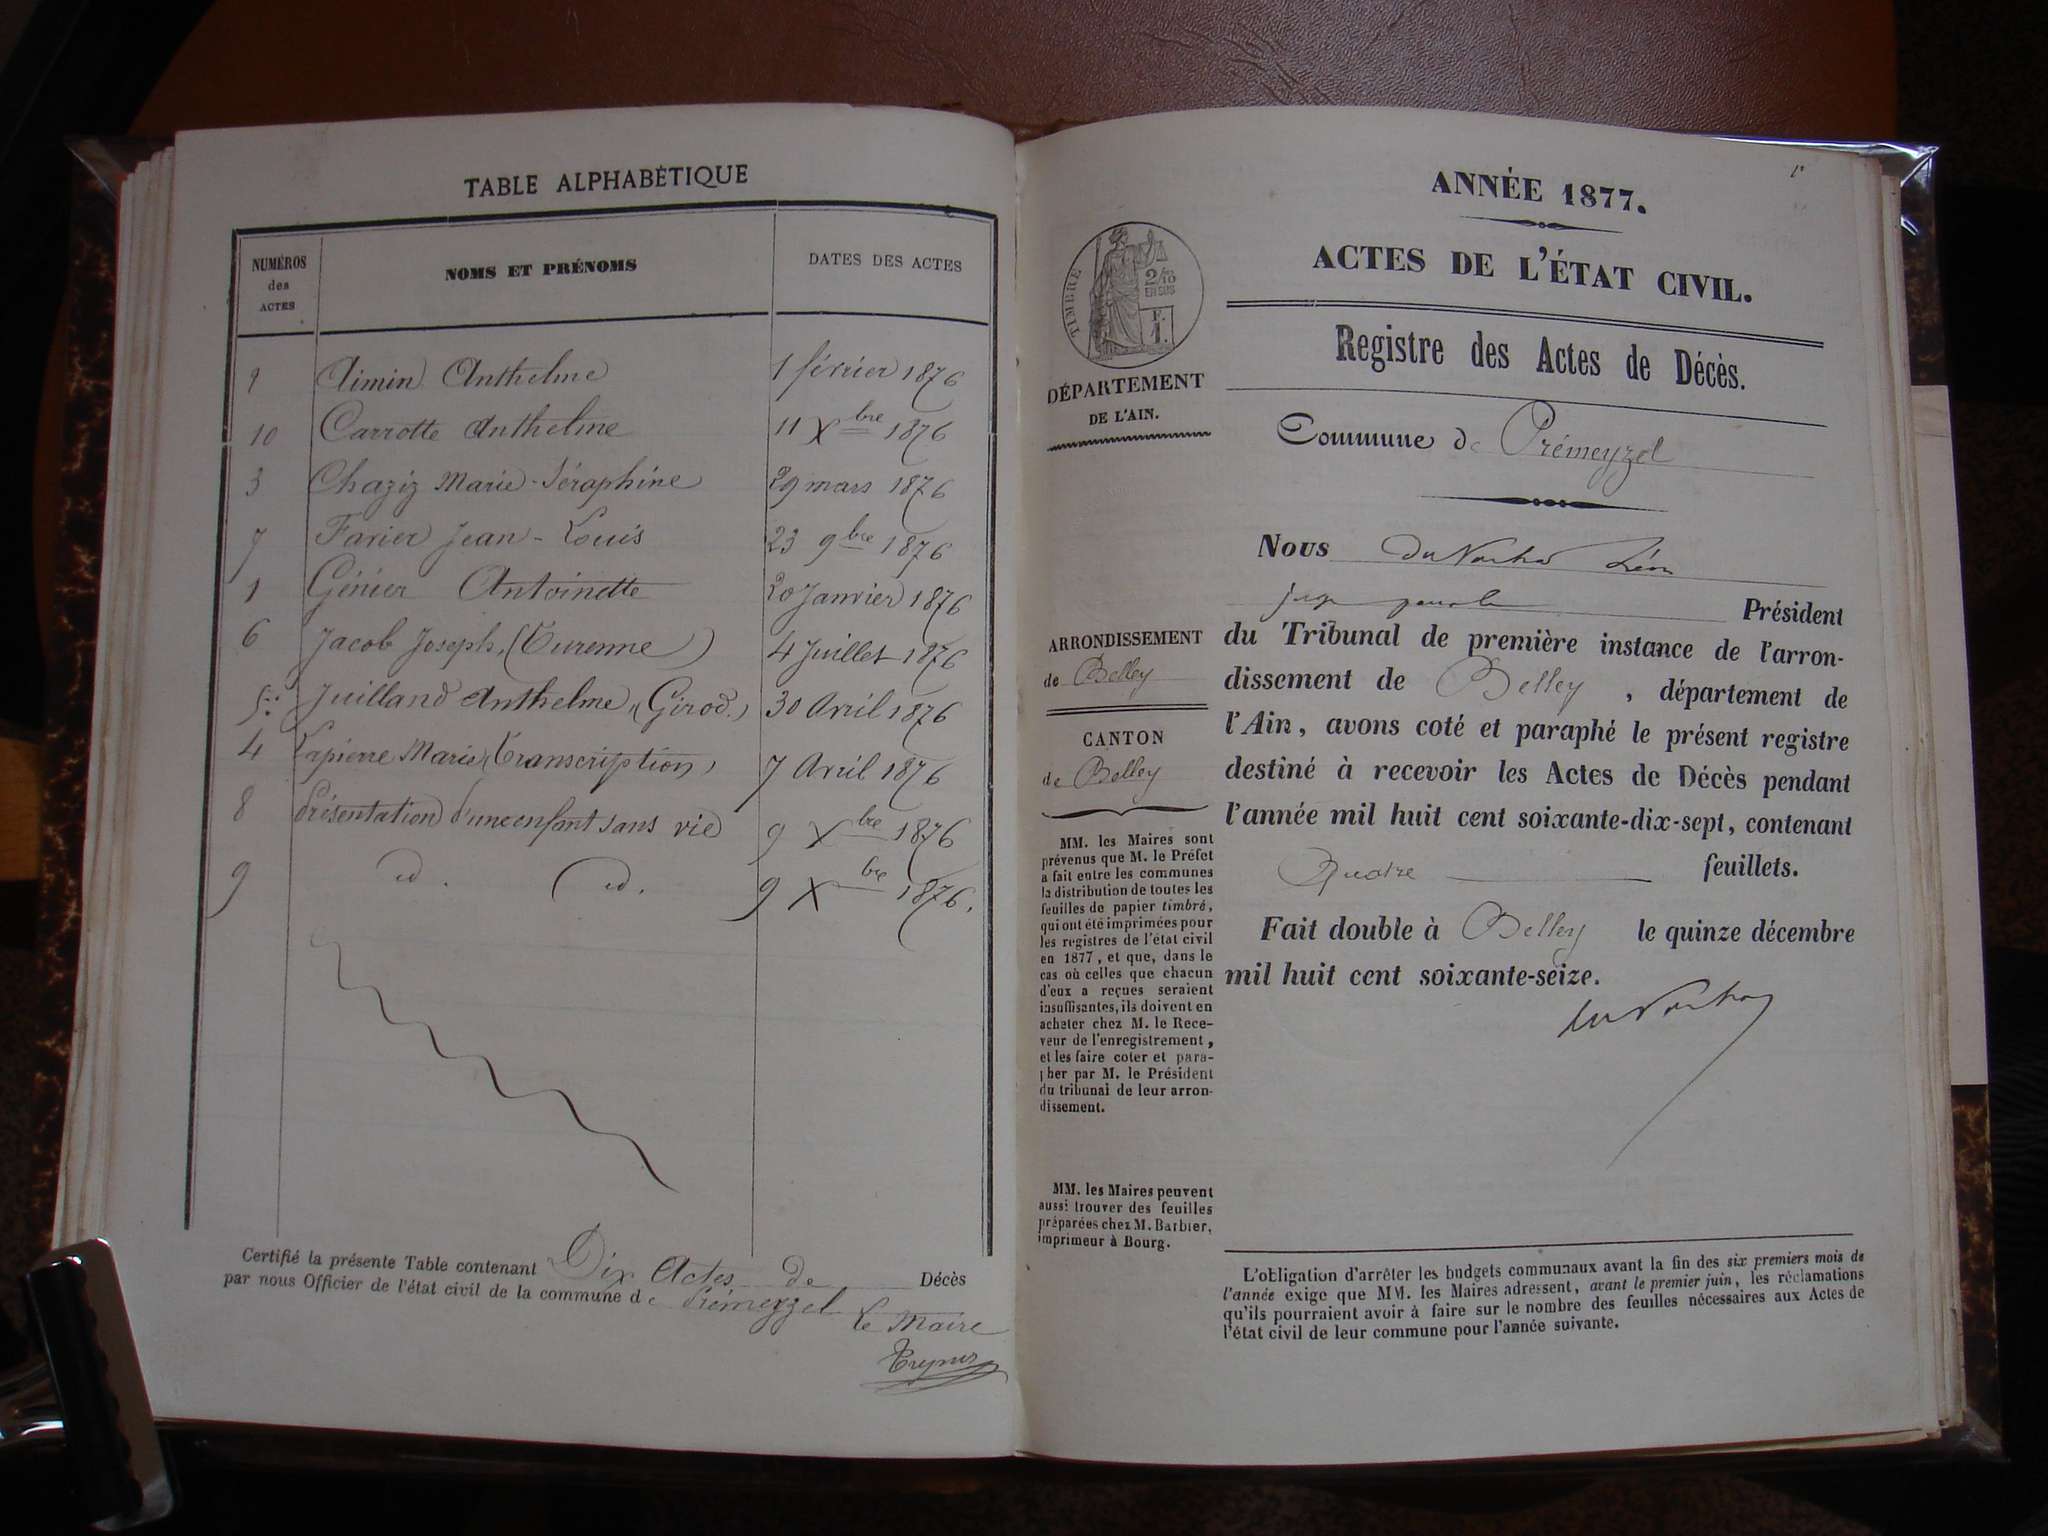 TABLE ALPHABÉTIQUE
NUMÉROS des ACTES NOMS ET PRÉNOMS DATES DES ACTES
Aimin Anthelme 1 février 1876
10 Carrotte Anthelme 11 Xbre 1876
3 Chaziz Marie-Séraphine 29 mars 1876
7 Favier Jean-Louis 23 9bre 1876
1 Génier Antoinette 20 Janvier 1876
6 Jacob Joseph, (Turenne) 4 Juillet 1876
5 Juilland Anthelme, (Girod.) 30 Avril 1876
4 Lapierre Marie (Transcription) 7 Avril 1876
8 Présentation d'un enfant sans vie 9 Xbre 1876
9 id. id. 9 Xbre 1876.
Certifié la présente Table contenant Dix Actes de Décès
par nous Officier de l'état civil de la commune de Prémeyzel
Le Maire
1e
ANNÉE 1877.
ACTES DE L'ÉTAT CIVIL.
Registre des Actes de Décès.
TIMBRE
2/10
EN SUS
F.
1.
DÉPARTEMENT
DE L'AIN.
Commune de Prémeyzel
ARRONDISSEMENT
de Belley
CANTON
de Belley
MM. les Maires sont
prévenus que M. le Préfet
a fait entre les communes
la distribution de toutes les
feuilles de papier timbré,
qui ont été imprimées pour
les registres de l'état civil
en 1877, et que, dans le
cas où celles que chacun
d'eux a reçues seraient
insuffisantes, ils doivent en
acheter chez M. le Rece-
veur de l'enregistrement,
et les faire coter et para-
pher par M. le Président
du tribunal de leur arron-
dissement.
MM. les Maires peuvent
aussi trouver des feuilles
préparées chez M. Barbier,
imprimeur à Bourg.
Nous Léon
Président
du Tribunal de première instance de l'arron-
dissement de Belley, département de
l'Ain, avons coté et paraphé le présent registre
destiné à recevoir les Actes de Décès pendant
l'année mil huit cent soixante-dix-sept, contenant
Quatre feuillets.
Fait double à Belley le quinze décembre
mil huit cent soixante-seize.
L'obligation d'arrêter les budgets communaux avant la fin des six premiers mois de
l'année exige que MM. les Maires adressent, avant le premier juin, les réclamations
qu'ils pourraient avoir à faire sur le nombre des feuilles nécessaires aux Actes de
l'état civil de leur commune pour l'année suivante.